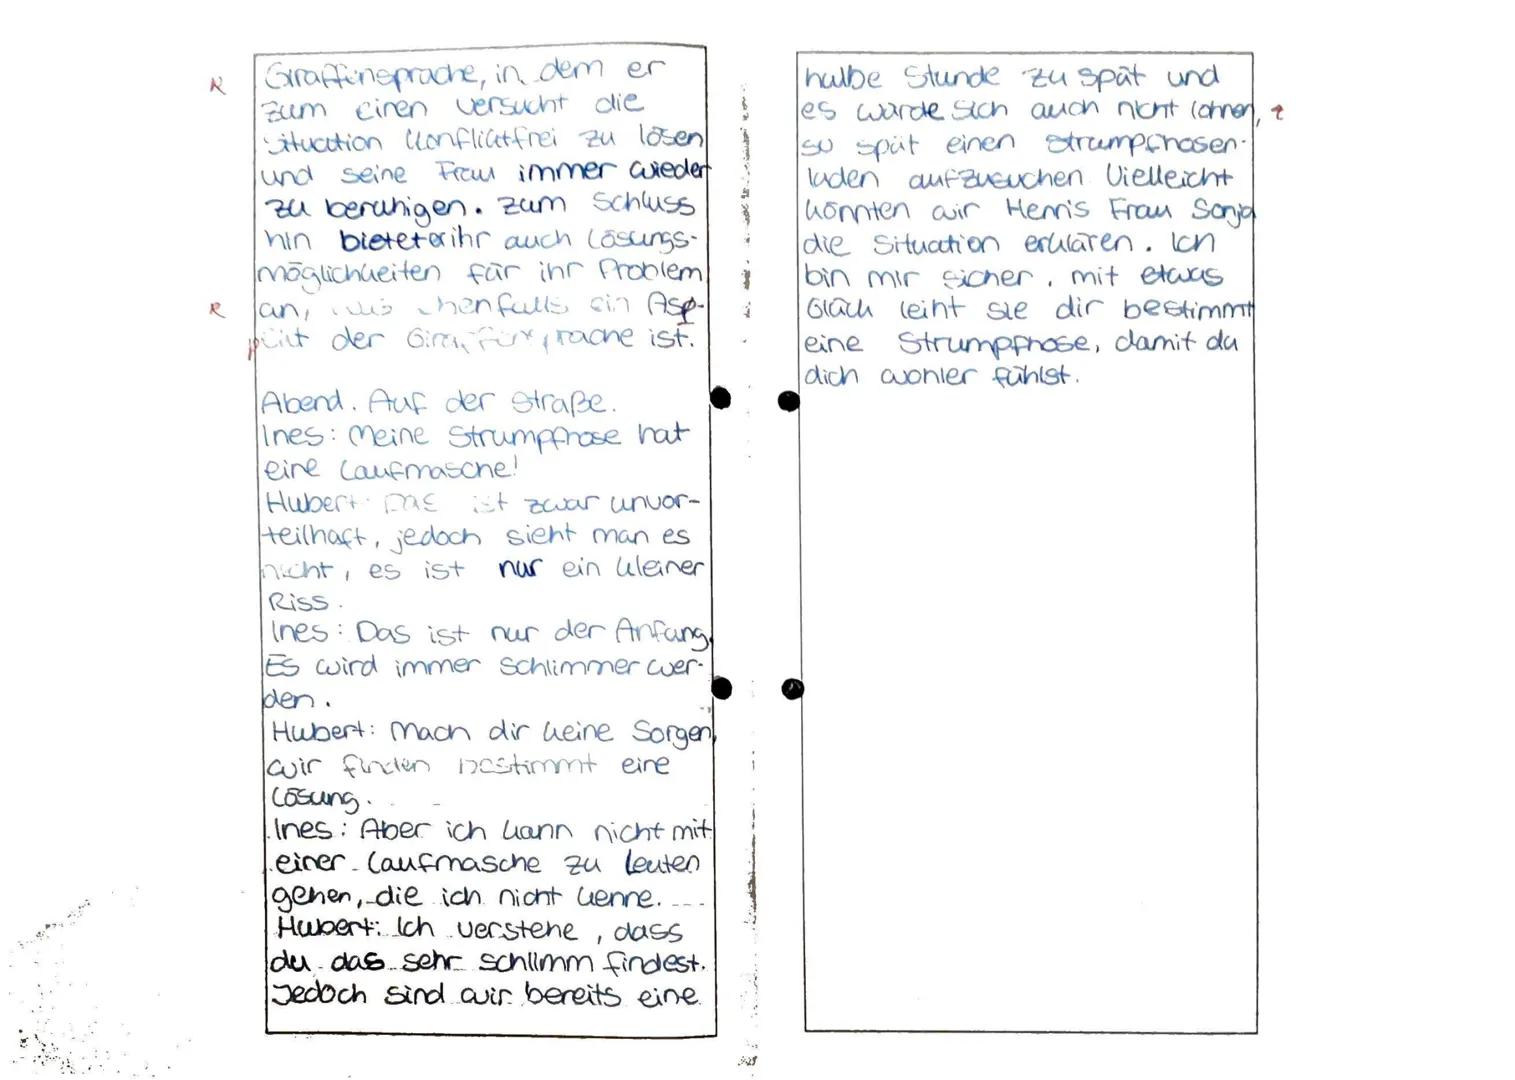 R
Giraffensprache, in dem er
zum einen versucht die
Situation konfliktfrei zu lösen
und seine Frau immer wieder
zu beruhigen. Zum Schluss
hin bietet er ihr auch Lösungs-
möglichkeiten für ihr Problem
R
an, ein Asp-
pekt der ist.
Abend. Auf der Straße.
Ines: Meine Strumpfhose hat
eine Laufmasche!
Hubert: Das ist zwar unvor-
teilhaft, jedoch sieht man es
nicht, es ist nur ein kleiner
Riss.
Ines: Das ist nur der Anfang.
Es wird immer schlimmer wer-
den.
Hubert: Mach dir keine Sorgen,
wir finden bestimmt eine
Lösung.
Ines: Aber ich kann nicht mit
einer Laufmasche zu Leuten
gehen, die ich nicht kenne.
Hubert: Ich verstehe, dass
du das sehr schlimm findest.
Jedoch sind wir bereits eine
halbe Stunde zu spät und
es würde sich auch nicht lohnen,
so spät einen Strumpfhosen-
laden aufzusuchen. Vielleicht
könnten wir Henris Frau Sonja
die Situation erklären. Ich
bin mir sicher, mit etwas
Glück leiht sie dir bestimmt
eine Strumpfhose, damit du
dich wohler fühlst.